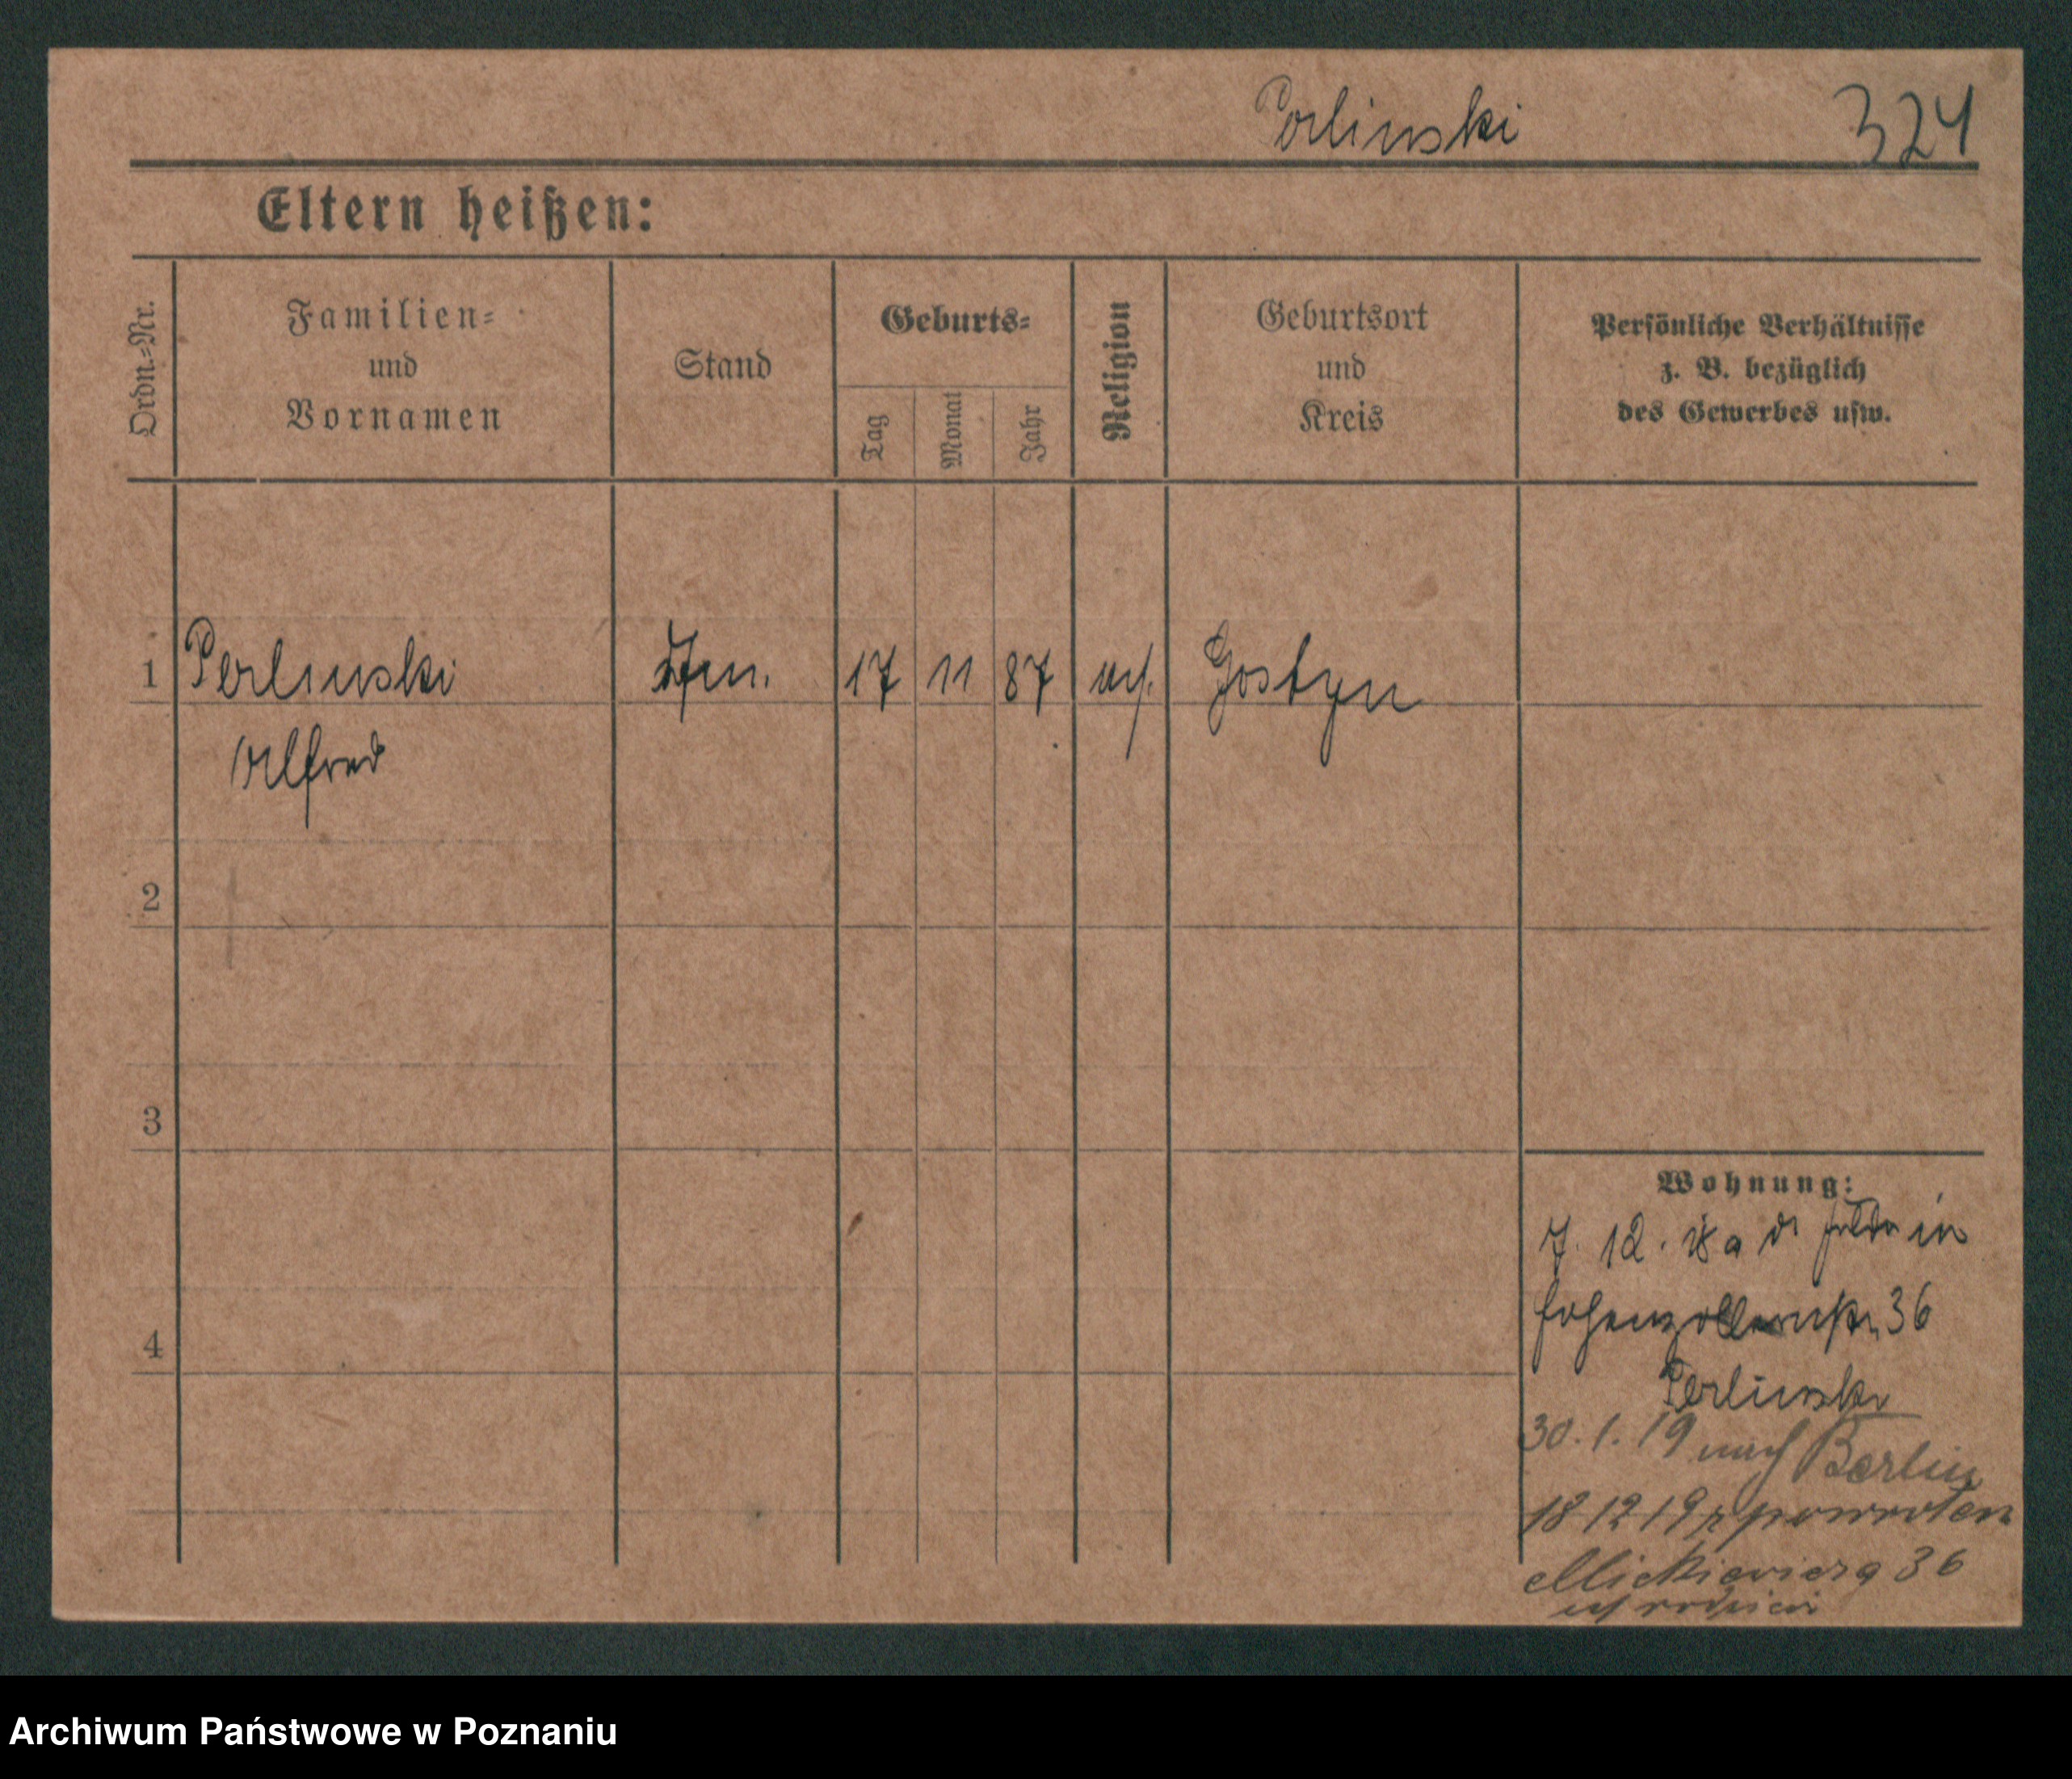 Perlinski 324
Eltern heißen:
Ordn.=Nr.
Familien=
und
Vornamen
Stand
Geburts=
Tag
Monat
Jahr
Religion
Geburtsort
und
Kreis
Persönliche Verhältnisse
z. B. bezüglich
des Gewerbes usw.
1 Perlinski 17 11 87 Gostyn
Alfred
2
3
4
Wohnung:
7. 12. 18 a d in
Hohenzollernstr 36
Perlinski
30. 1. 19 nach Berlin
18 12 19 z powrotem
Mickiewicza 36
Archiwum Państwowe w Poznaniu